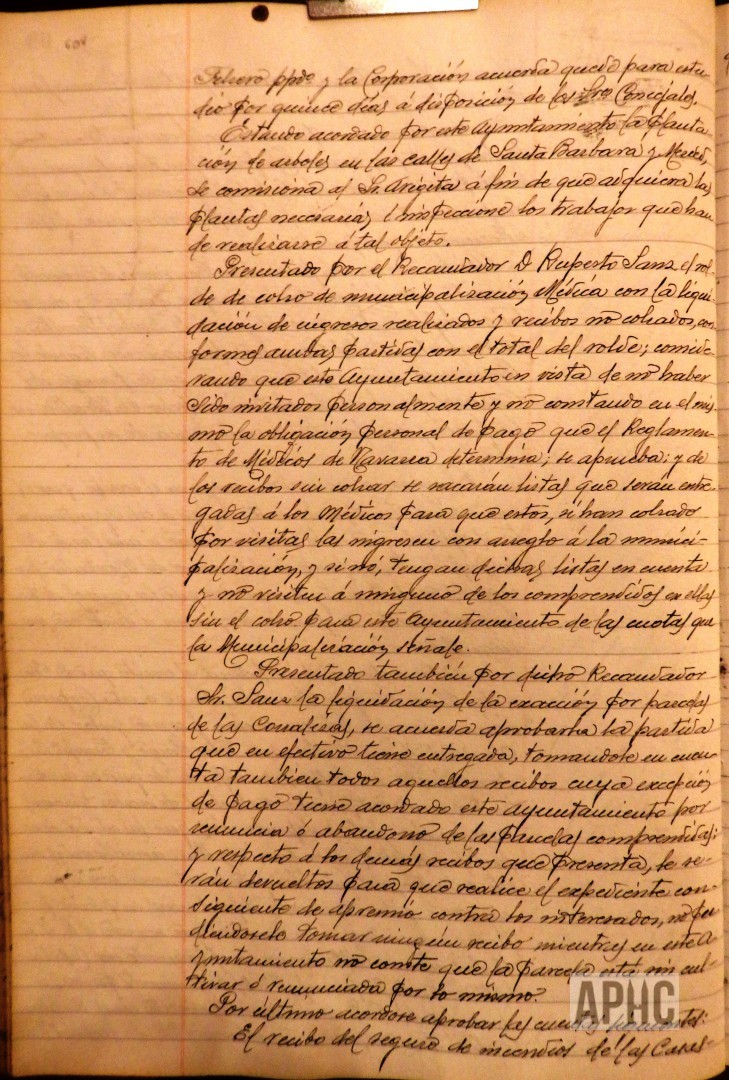 Febrero ppdo y la Corporación acuerda quede para estu-
dio por quince días á disposición de los Sres Concejales.
Estando acordado por este Ayuntamiento la planta-
ción de arboles en las calles de Santa Barbara y Merced,
se comisiona al Sr. Arigita á fin de que adquiera las
plantas necesarias é inspeccione los trabajos que han
de realizarse á tal objeto.
Presentado por el Recaudador D. Ruperto Sanz el rol-
de de cobro de municipalización Médica con la liqui-
dación de ingresos realizados y recibos no cobrados, con-
formes ambas partidas con el total del rolde; conside-
rando que este Ayuntamiento en vista de no haber
sido invitados personalmente y no constando en el mis-
mo la obligación personal de pago que el Reglamen-
to de Médicos de Navarra determina; se aprueba: y de
los recibos sin cobrar se sacarán listas que seran entre-
gadas á los Médicos para que estos, si han cobrado
por visitas las ingresen con arreglo á la munici-
palización, y si nó, tengan dichas listas en cuenta
y no visiten á ninguno de los comprendidos en ellas
sin el cobro para este Ayuntamiento de las cuotas que
la Municipalización señale.
Presentado también por dicho Recaudador
Sr. Sanz la liquidación de la exacción por parcelas
de las Corralizas, se acuerda aprobarla la partida
que en efectivo tiene entregada, tomandole en cuen-
ta tambien todos aquellos recibos cuya excepción
de pago tiene acordado este Ayuntamiento por
renuncia ó abandono de las parcelas comprendidas;
y respecto á los demás recibos que presenta, le se-
rán devueltos para que realice el expediente con-
siguiente de apremio contra los interesados, no pu-
diendosele tomar ningún recibo mientras en este A-
yuntamiento no conste que la parcela está sin cul-
tivar ó renunciada por lo mismo.
Por último acordose aprobar las cuentas siguientes:
El recibo del seguro de incendios de las Casas-
APHC